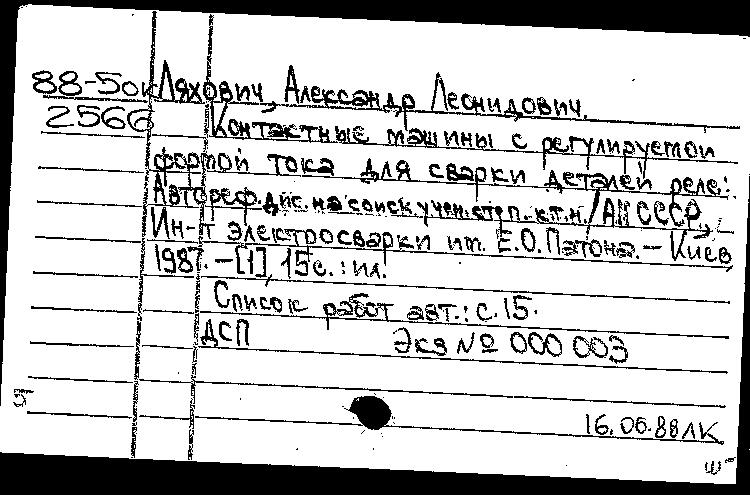 88-5ок Ляхович, Александр Леонидович.
2566 Контактные машины с регулируемой
формой тока для сварки деталей реле:
Автореф. дис. на соиск. учен. степ. к.т.н. / АН СССР,
Ин-т электросварки им. Е.О. Патона. – Киев,
1987. – [1], 15 с. : ил.
Список работ авт.: с. 15.
ДСП Экз № 000 003
5
16.06.88 ЛК
ш